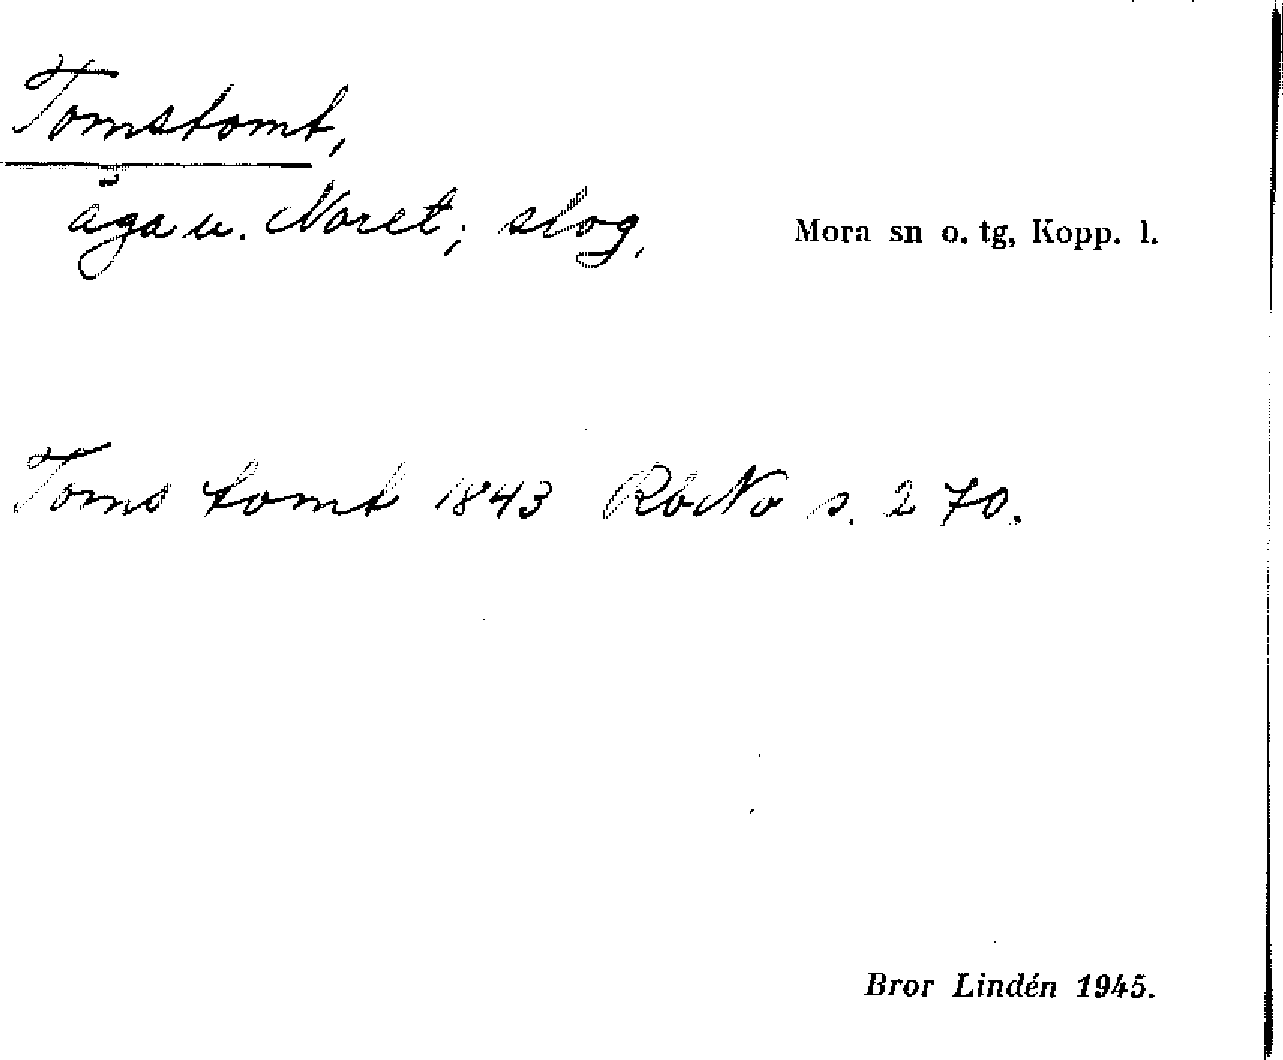 Tomstomt,
äga u. Noret; slog. Mora sn o. tg, Kopp. l.
Toms tomt 1843 RbNo s. 270.
Bror Lindén 1945.